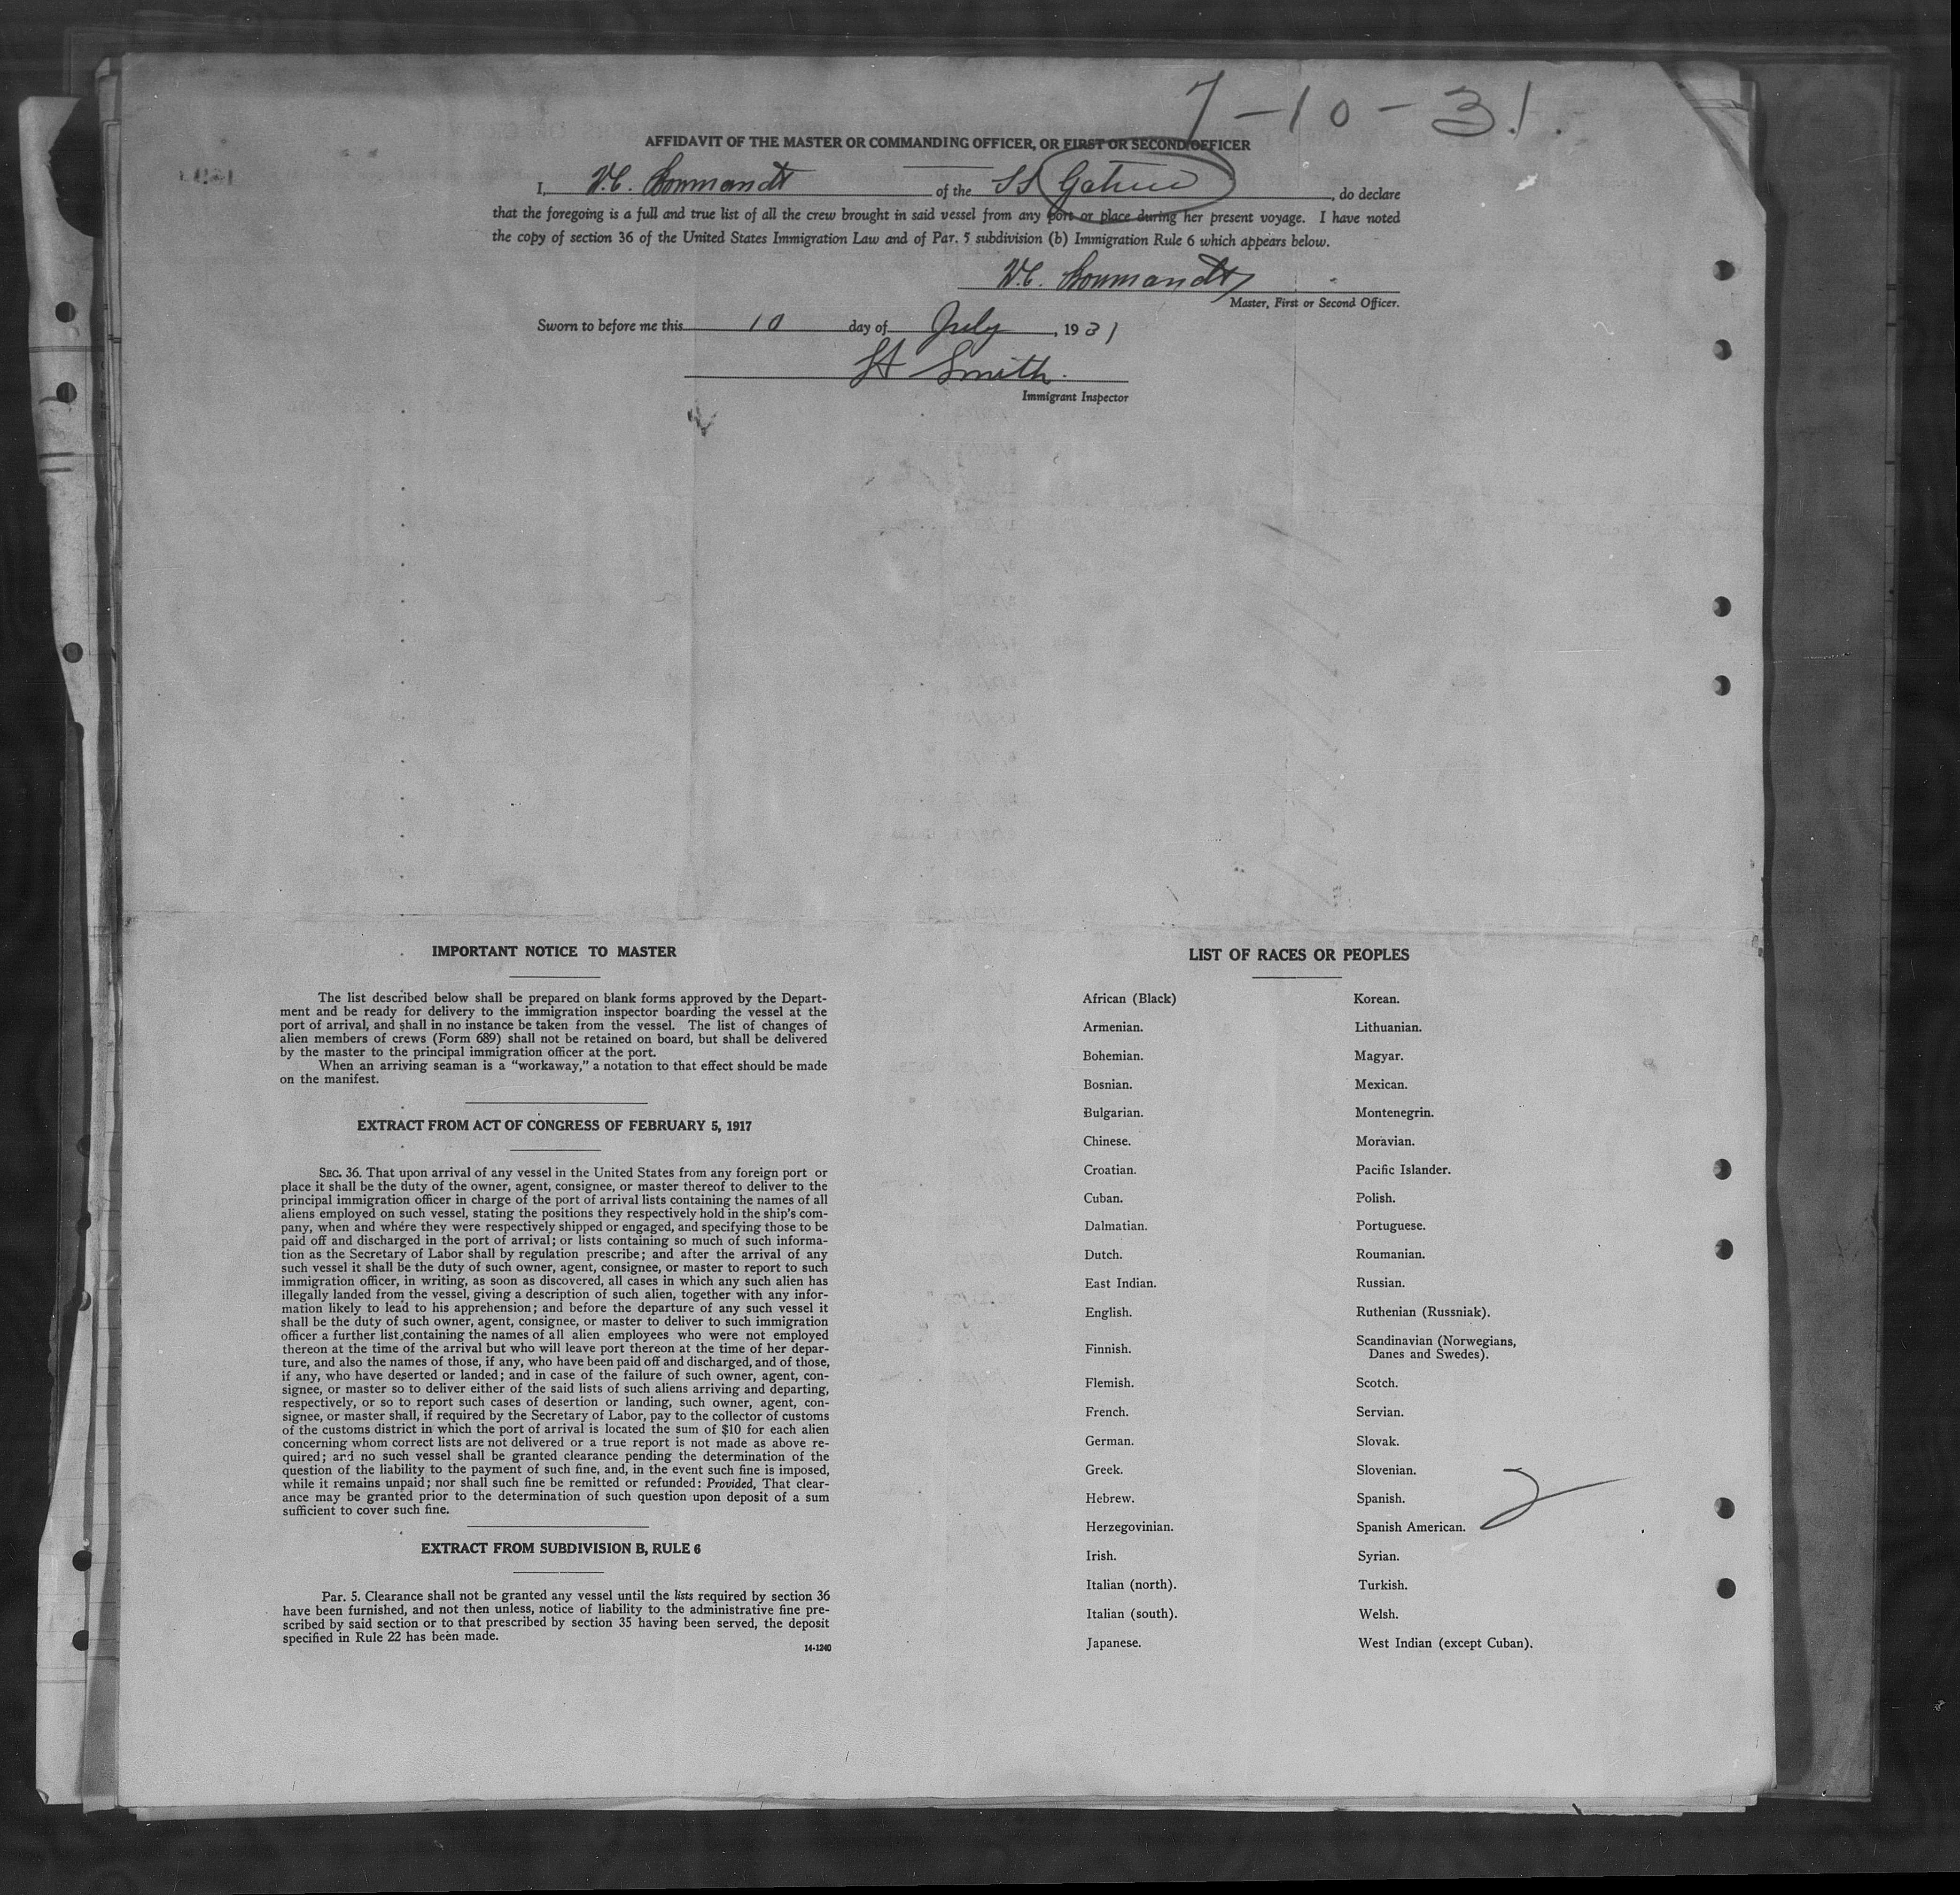 7-10-31.
AFFIDAVIT OF THE MASTER OR COMMANDING OFFICER, OR FIRST OR SECOND OFFICER
I, of the SS , do declare
that the foregoing is a full and true list of all the crew brought in said vessel from any port or place during her present voyage. I have noted
the copy of section 36 of the United States Immigration Law and of Par. 5 subdivision (b) Immigration Rule 6 which appears below.
Master, First or Second Officer.
Sworn to before me this 10 day of July, 1931
Smith.
Immigrant Inspector
IMPORTANT NOTICE TO MASTER
The list described below shall be prepared on blank forms approved by the Depart-
ment and be ready for delivery to the immigration inspector boarding the vessel at the
port of arrival, and shall in no instance be taken from the vessel. The list of changes of
alien members of crews (Form 689) shall not be retained on board, but shall be delivered
by the master to the principal immigration officer at the port.
When an arriving seaman is a “workaway,” a notation to that effect should be made
on the manifest.
EXTRACT FROM ACT OF CONGRESS OF FEBRUARY 5, 1917
SEC. 36. That upon arrival of any vessel in the United States from any foreign port or
place it shall be the duty of the owner, agent, consignee, or master thereof to deliver to the
principal immigration officer in charge of the port of arrival lists containing the names of all
aliens employed on such vessel, stating the positions they respectively hold in the ship's com-
pany, when and where they were respectively shipped or engaged, and specifying those to be
paid off and discharged in the port of arrival; or lists containing so much of such informa-
tion as the Secretary of Labor shall by regulation prescribe; and after the arrival of any
such vessel it shall be the duty of such owner, agent, consignee, or master to report to such
immigration officer, in writing, as soon as discovered, all cases in which any such alien has
illegally landed from the vessel, giving a description of such alien, together with any infor-
mation likely to lead to his apprehension; and before the departure of any such vessel it
shall be the duty of such owner, agent, consignee, or master to deliver to such immigration
officer a further list containing the names of all alien employees who were not employed
thereon at the time of the arrival but who will leave port thereon at the time of her depar-
ture, and also the names of those, if any, who have been paid off and discharged, and of those,
if any, who have deserted or landed; and in case of the failure of such owner, agent, con-
signee, or master so to deliver either of the said lists of such aliens arriving and departing,
respectively, or so to report such cases of desertion or landing, such owner, agent, con-
signee, or master shall, if required by the Secretary of Labor, pay to the collector of customs
of the customs district in which the port of arrival is located the sum of $10 for each alien
concerning whom correct lists are not delivered or a true report is not made as above re-
quired; and no such vessel shall be granted clearance pending the determination of the
question of the liability to the payment of such fine, and, in the event such fine is imposed,
while it remains unpaid; nor shall such fine be remitted or refunded: Provided, That clear-
ance may be granted prior to the determination of such question upon deposit of a sum
sufficient to cover such fine.
EXTRACT FROM SUBDIVISION B, RULE 6
Par. 5. Clearance shall not be granted any vessel until the lists required by section 36
have been furnished, and not then unless, notice of liability to the administrative fine pre-
scribed by said section or to that prescribed by section 35 having been served, the deposit
specified in Rule 22 has been made.
14-1240
LIST OF RACES OR PEOPLES
African (Black)
Armenian.
Bohemian.
Bosnian.
Bulgarian.
Chinese.
Croatian.
Cuban.
Dalmatian.
Dutch.
East Indian.
English.
Finnish.
Flemish.
French.
German.
Greek.
Hebrew.
Herzegovinian.
Irish.
Italian (north).
Italian (south).
Japanese.
Korean.
Lithuanian.
Magyar.
Mexican.
Montenegrin.
Moravian.
Pacific Islander.
Polish.
Portuguese.
Roumanian.
Russian.
Ruthenian (Russniak).
Scandinavian (Norwegians,
Danes and Swedes).
Scotch.
Servian.
Slovak.
Slovenian.
Spanish.
Spanish American.
Syrian.
Turkish.
Welsh.
West Indian (except Cuban).
2